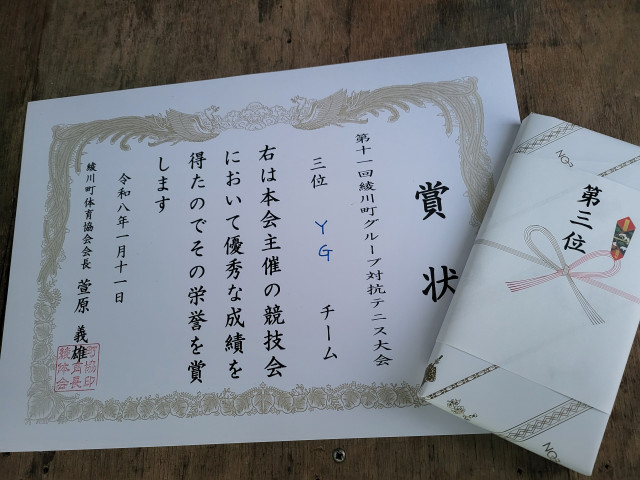 賞状
第十一回綾川町グループ対抗テニス大会
三位 YG チーム
右は本会主催の競技会
において優秀な成績を
得たのでその栄誉を賞
します
令和八年一月十一日
綾川町体育協会会長 菅原義雄
第三位